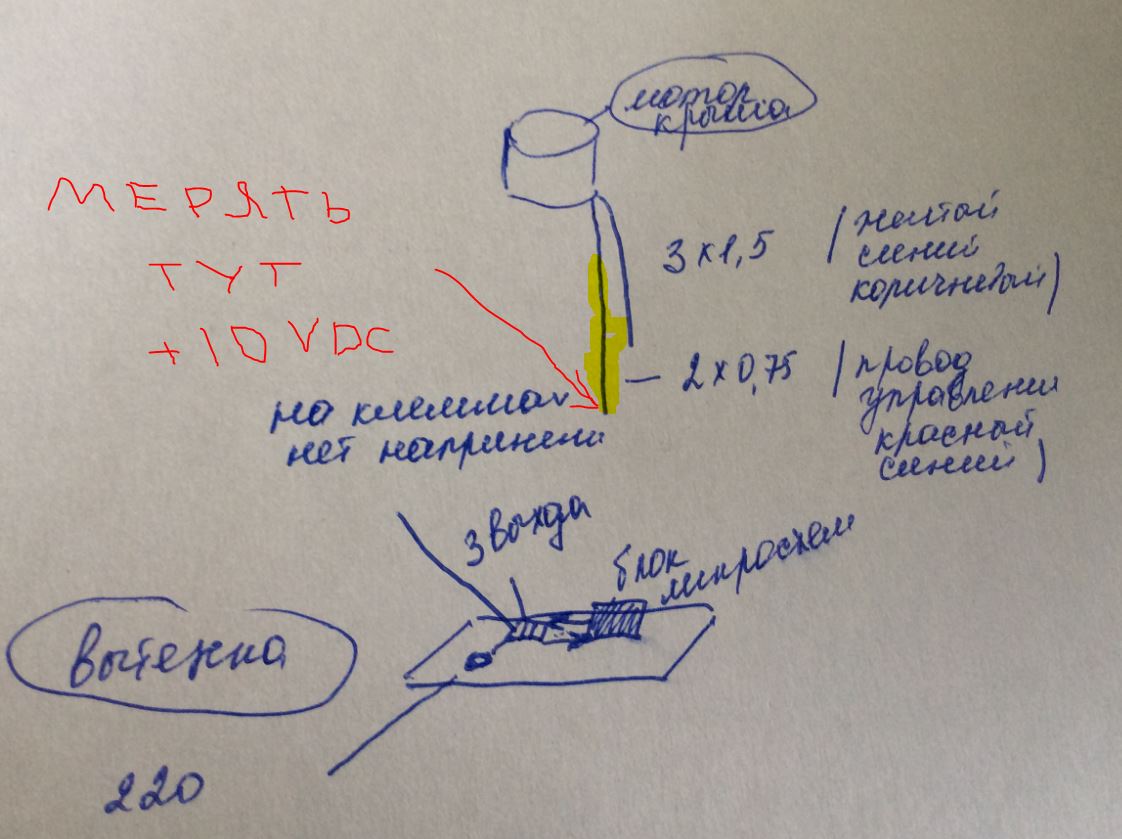 мотор
крыша
МЕРЯТЬ
ТУТ
+10 VDC
3 x 1,5 / желтый
синий
коричневый)
2 x 0,75 / провод
управления
красный
синий)
на клеммах
нет напряжения
3 выхода
блок
микросхем
вытежка
220